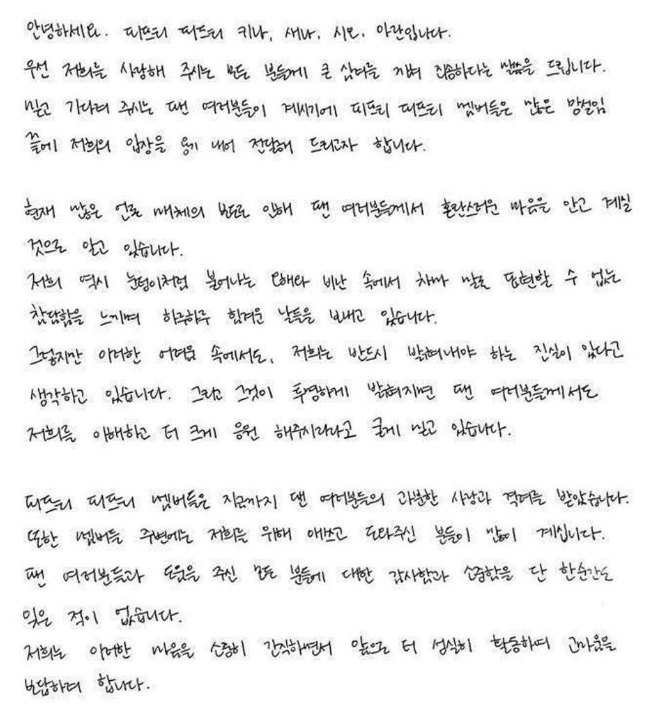 안녕하세요. 피프티 피프티 키나, 새나, 시오, 아란입니다.
우선 저희를 사랑해 주시는 모든 분들께 큰 심려를 끼쳐 죄송하다는 말씀을 드립니다.
믿고 기다려 주시는 팬 여러분들이 계시기에 피프티 피프티 멤버들은 많은 망설임
끝에 저희의 입장을 용기 내어 전달해 드리고자 합니다.
현재 많은 언론 매체의 보도로 인해 팬 여러분들께서 혼란스러운 마음을 안고 계실
것으로 알고 있습니다.
저희 역시 눈덩이처럼 불어나는 오해와 비난 속에서 차마 말로 표현할 수 없는
참담함을 느끼며 하루하루 힘겨운 날들을 보내고 있습니다.
그렇지만 이러한 어려움 속에서도, 저희는 반드시 밝혀내야 하는 진실이 있다고
생각하고 있습니다. 그리고 그것이 투명하게 밝혀지면 팬 여러분들께서도
저희를 이해하고 더 크게 응원 해주시리라고 굳게 믿고 있습니다.
피프티 피프티 멤버들은 지금까지 팬 여러분들의 과분한 사랑과 격려를 받았습니다.
또한 멤버들 주변에는 저희를 위해 애쓰고 도와주신 분들이 많이 계십니다.
팬 여러분들과 도움을 주신 모든 분들에 대한 감사함과 소중함을 단 한순간도
잊은 적이 없습니다.
저희는 이러한 마음을 소중히 간직하면서 앞으로 더 성실히 활동하며 고마움을
보답하려 합니다.